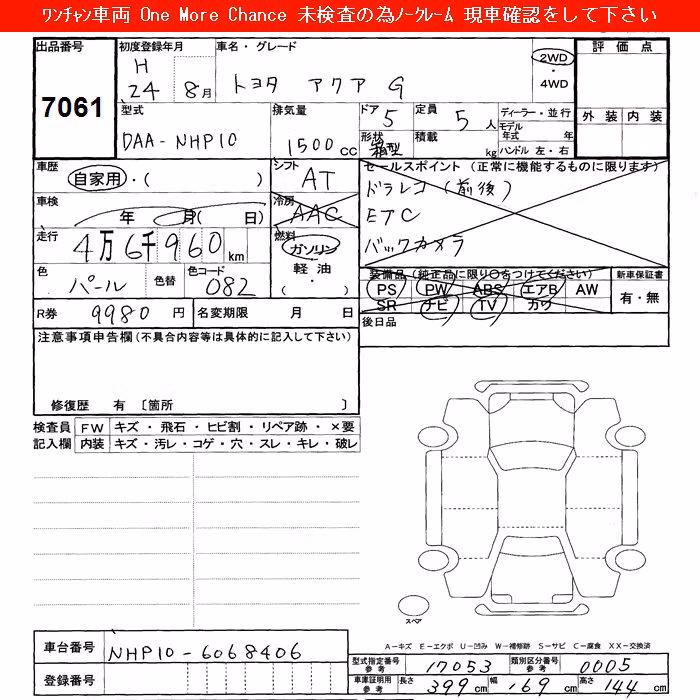 ワンチャン車両 One More Chance 未検査の為ﾉｰｸﾚｰﾑ 現車確認をして下さい
出品番号
7061
初度登録年月
H
24 8月
車名・グレード
トヨタ アクア G
2WD
・
4WD
評価点
外装 内装
型式
DAA-NHP10
排気量
1500 cc
ドア 5
定員 5 人
形状
箱型
積載 kg
ディーラー・並行
モデル
年式 年
ハンドル 左・右
車歴
自家用・( )
シフト
AT
セールスポイント (正常に機能するものに限ります)
ドラレコ (前後)
ETC
バックカメラ
車検
年 月( 日)
冷房
AAC
走行
4万6千960 km
燃料
ガソリン
軽油
・( )
色
パール
色替
色コード
082
装備品 (純正品に限り○をつけてください)
PS PW ABS エアB AW
SR ナビ TV カワ
新車保証書
有・無
R券 9980 円
名変期限 月 日
後日品
注意事項申告欄(不具合内容等は具体的に記入して下さい)
修復歴 有 〔箇所 〕
検査員 FW キズ・飛石・ヒビ割・リペア跡・×要
記入欄 内装 キズ・汚レ・コゲ・穴・スレ・キレ・破レ
スペア
A－キズ E－エクボ U－凹み W－補修跡 S－サビ C－腐食 XX－交換済
車台番号 NHP10-6068406
登録番号
型式指定番号
参考 17053
類別区分番号
参考 0005
車庫証明用
参考 長さ 399 cm 幅 169 cm 高さ 144 cm